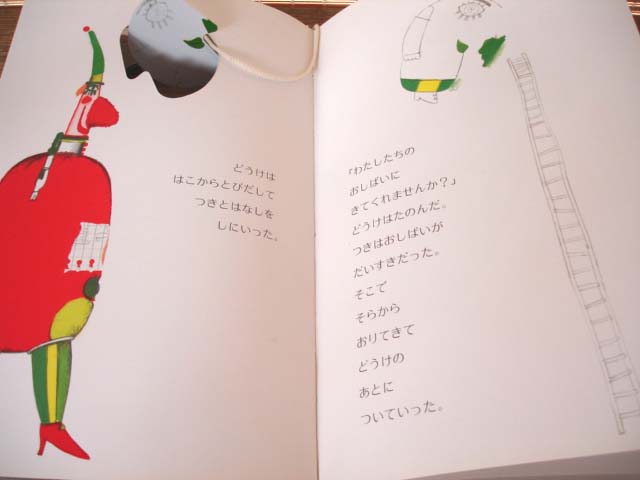 どうけは
はこからとびだして
つきとはなしを
しにいった。
「わたしたちの
おしばいに
きてくれませんか？」
どうけはたのんだ。
つきはおしばいが
だいすきだった。
そこで
そらから
おりてきて
どうけの
あとに
ついていった。